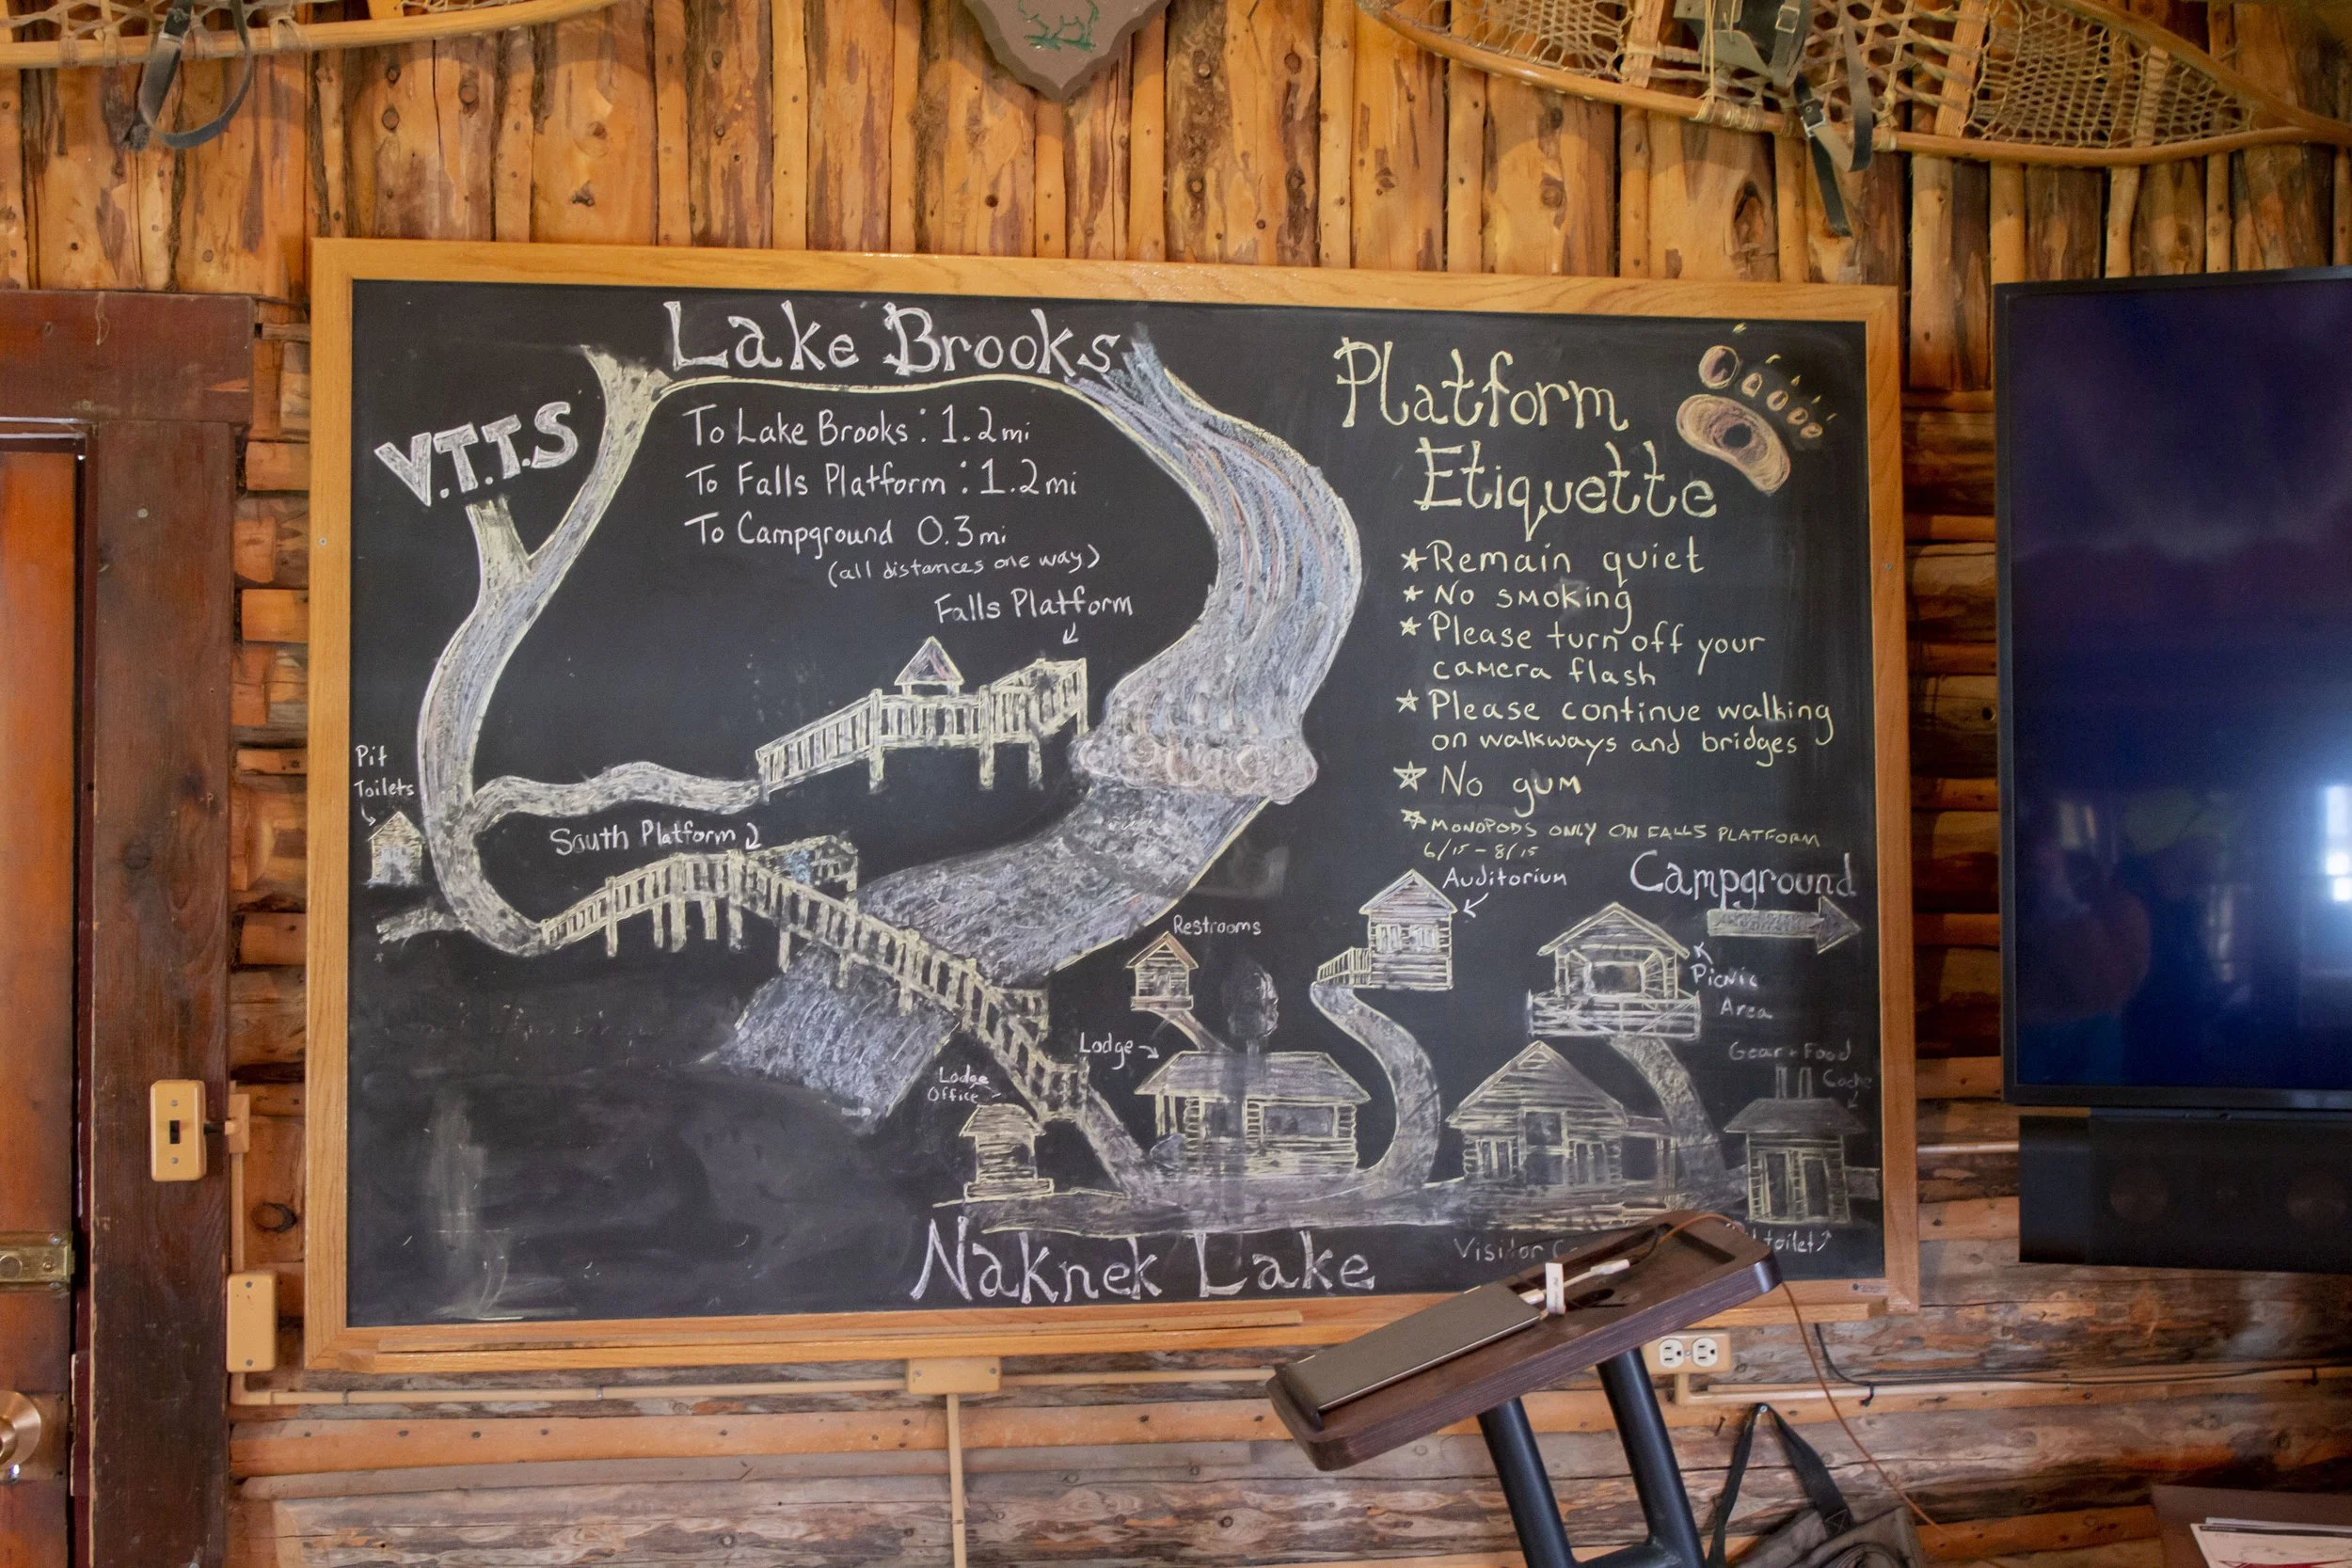 Lake Brooks
V.T.T.S
To Lake Brooks: 1.2mi
To Falls Platform: 1.2mi
To Campground 0.3mi
(all distances one way)
Falls Platform
Pit
Toilets
South Platform
Platform
Etiquette
Remain quiet
No smoking
Please turn off your
camera flash
Please continue walking
on walkways and bridges
No gum
MONOPODS ONLY ON FALLS PLATFORM
6/15-8/15
Auditorium
Campground
Restrooms
Picnic
Area
Lodge
Lodge
Office
Gear + Food
Cache
Naknek Lake
Visitor
toilet